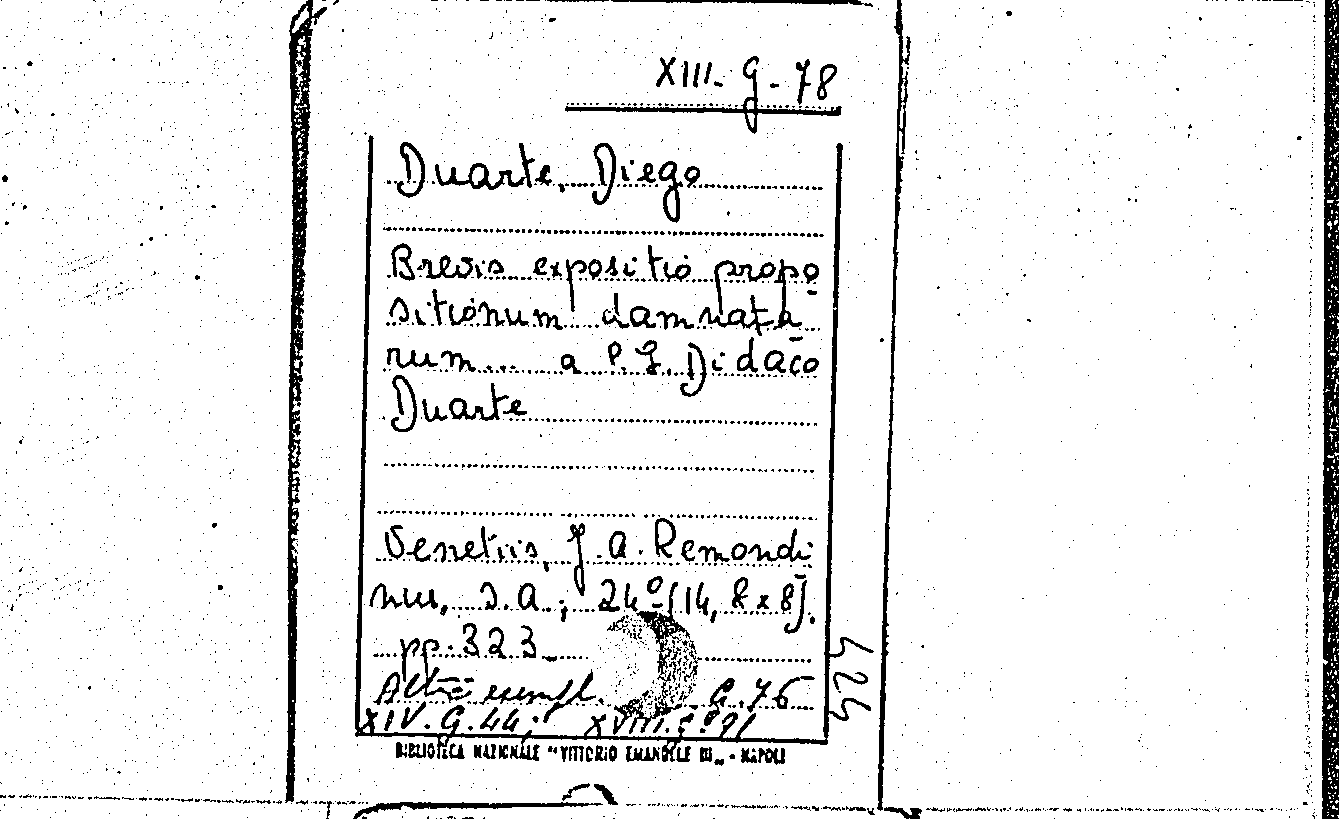 XIII. G. 78
Duarte, Diego
Brevis expositio propo
sitionum damnata
rum... a P. J. Didaco
Duarte
Venetiis, J. A. Remondi
nus, s.a.; 24º (14,8 x 8).
pp. 323
Altri esempl. G. 76
XIV. G. 44; XVIII. G. 91
BIBLIOTECA NAZIONALE "VITTORIO EMANUELE III" - NAPOLI